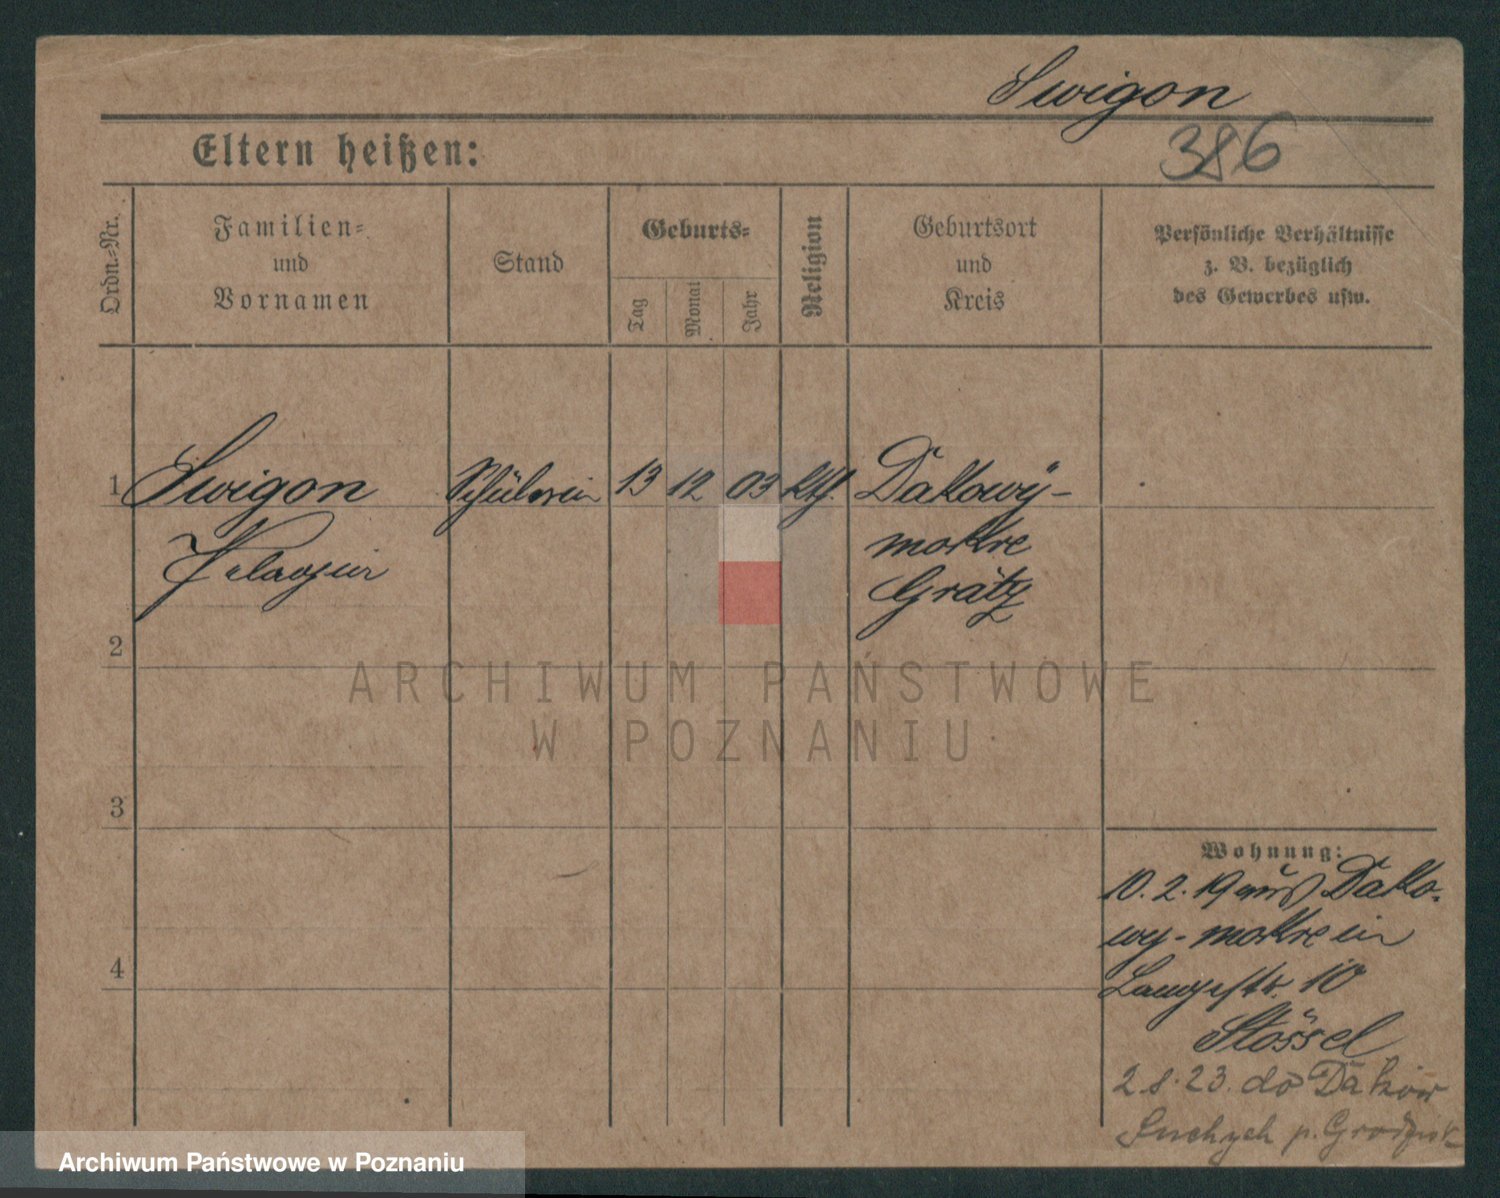 Swigon
386
Eltern heißen:
Ordn.-Nr.
Familien- und Vornamen
Stand
Geburts-
Tag
Monat
Jahr
Religion
Geburtsort und Kreis
Persönliche Verhältnisse
z. B. bezüglich
des Gewerbes usw.
1 Swigon Schülerin 13 12 03 kth. Dakowy-
Pelagia mokre
Grätz
2
ARCHIWUM PAŃSTWOWE
W POZNANIU
3
Wohnung:
10. 2. 19 aus Dako-
wy-mokre in
4
Langestr. 10
Stössel
2.8.23. do Daków
Suchych p. Grodzisk
Archiwum Państwowe w Poznaniu